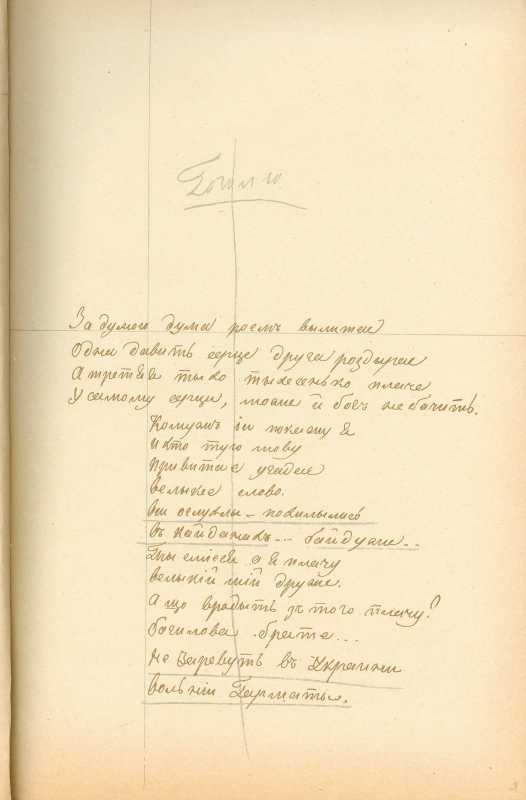 Гоголю
За думою дума роемъ вылитае
Одна давить серце друга роздырае
А третяя тыхо тыхесенько плаче
У самому серци, може й богъ не бачить.
Комужъ ии покажу я
И хто тую мову
привитае угадае
велыкее слово.
вси оглухлы - похылылись
въ кайданахъ... байдуже..
Ты смієсся а я плачу
велыкій мій друже.
А що вродыть зъ того плачу?
богилова брате...
Не заревуть въ Украини
вольніи Гарматы.